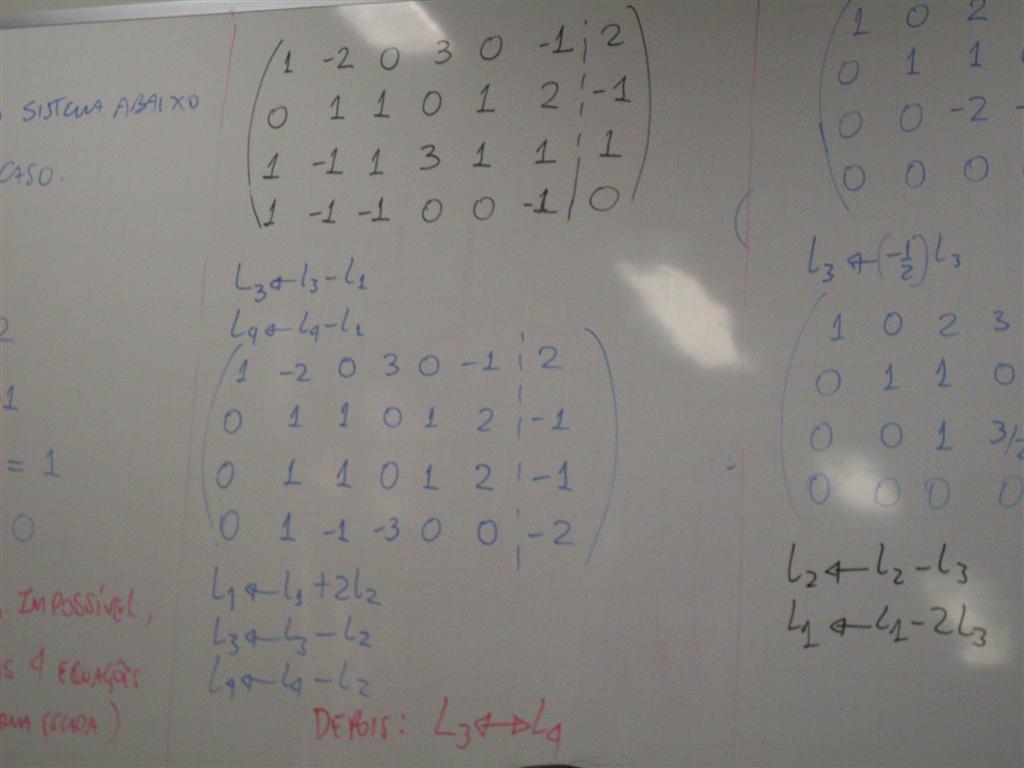 SISTEMA ABAIXO
CASO.
2
-1
= 1
0
IMPOSSÍVEL,
4 EQUAÇÕES
1 -2 0 3 0 -1 2
0 1 1 0 1 2 -1
1 -1 1 3 1 1 1
1 -1 -1 0 0 -1 0
L3←L3-L1
L4←L4-L1
1 -2 0 3 0 -1 2
0 1 1 0 1 2 -1
0 1 1 0 1 2 -1
0 1 -1 -3 0 0 -2
L1←L1+2L2
L3←L3-L2
L4←L4-L2
DEPOIS: L3↔L4
1 0 2
0 1 1
0 0 -2
0 0 0
L3←(-1/2)L3
1 0 2 3
0 1 1 0
0 0 1 3/2
0 0 0 0
L2←L2-L3
L1←L1-2L3